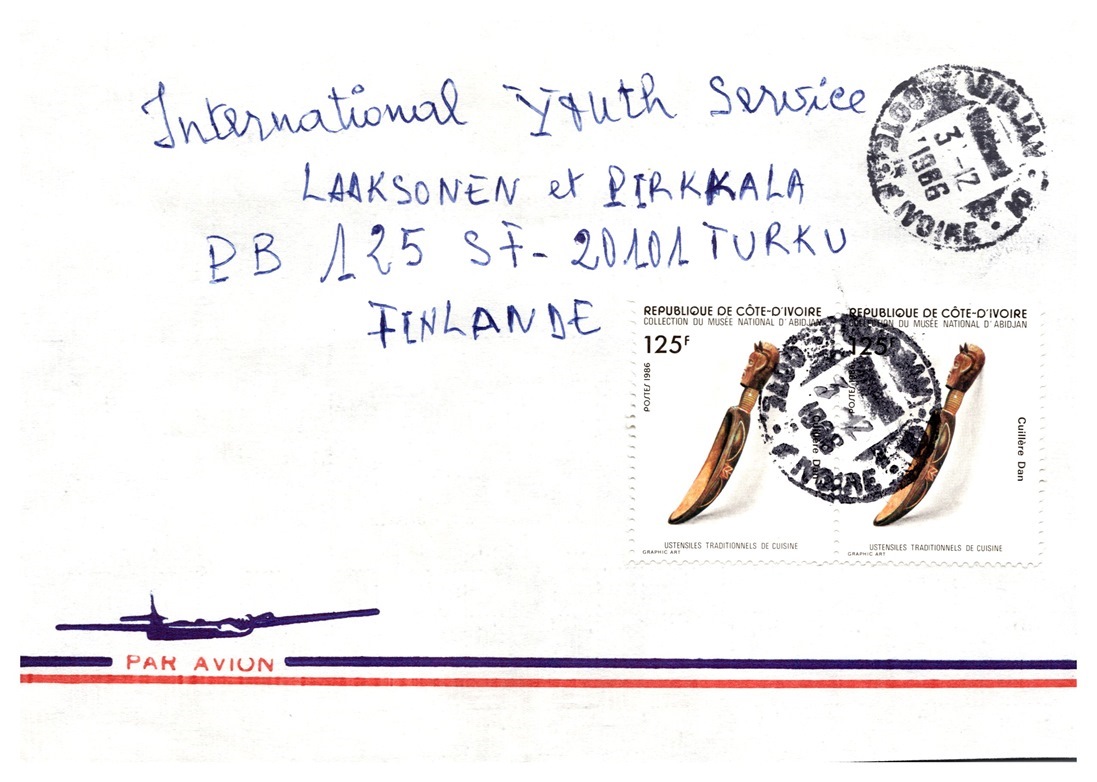 International Youth Service
LAAKSONEN et PIRKKALA
PB 125 SF-20101 TURKU
FINLANDE
COTE D'IVOIRE
3 -12
1986
REPUBLIQUE DE CÔTE-D'IVOIRE
COLLECTION DU MUSÉE NATIONAL D'ABIDJAN
125F
POSTES 1986
Cuillère Dan
USTENSILES TRADITIONNELS DE CUISINE
GRAPHIC ART
REPUBLIQUE DE CÔTE-D'IVOIRE
COLLECTION DU MUSÉE NATIONAL D'ABIDJAN
125F
POSTES 1986
Cuillère Dan
USTENSILES TRADITIONNELS DE CUISINE
GRAPHIC ART
3 12
1986
IVOIRE
PAR AVION